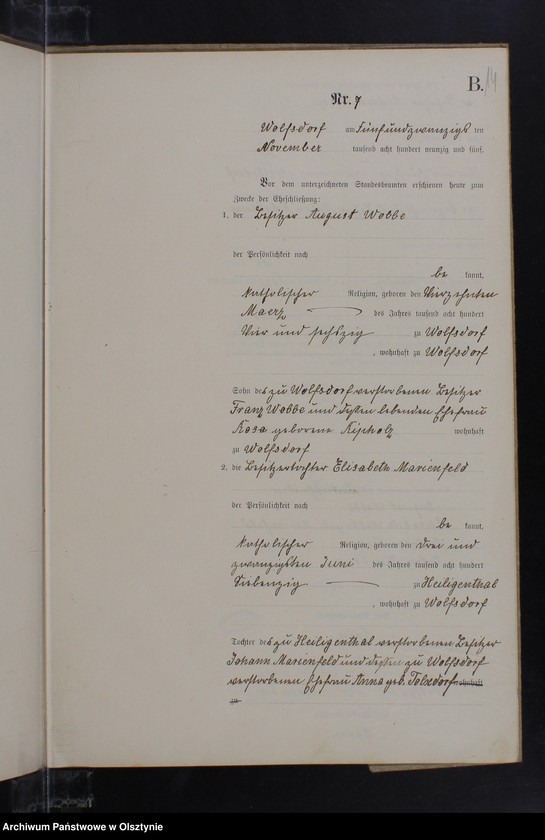 B.
14
Nr. 7
Wolfsdorf am Fünfundzwanzigs ten
November tausend acht hundert neunzig und fünf.
Vor dem unterzeichneten Standesbeamten erschienen heute zum
Zwecke der Eheschließung:
1. der Besitzer August Wobbe
der Persönlichkeit nach
be kannt,
katholischer Religion, geboren den Vierzehnten
Maerz des Jahres tausend acht hundert
Vier und sechszig zu Wolfsdorf
, wohnhaft zu Wolfsdorf
Sohn des zu Wolfsdorf verstorbenen Besitzer
Franz Wobbe und dessen lebenden Ehefrau
Rosa geborene Kipholz wohnhaft
zu Wolfsdorf
2. die Besitzertochter Elisabeth Marienfeld
der Persönlichkeit nach
be kannt,
katholischer Religion, geboren den drei und
zwanzigsten Juni des Jahres tausend acht hundert
Siebenzig zu Heiligenthal
, wohnhaft zu Wolfsdorf
Tochter des zu Heiligenthal verstorbenen Besitzer
Johann Marienfeld und dessen zu Wolfsdorf
verstorbenen Ehefrau Anna geb. Tolxdorf wohnhaft
zu
Archiwum Państwowe w Olsztynie